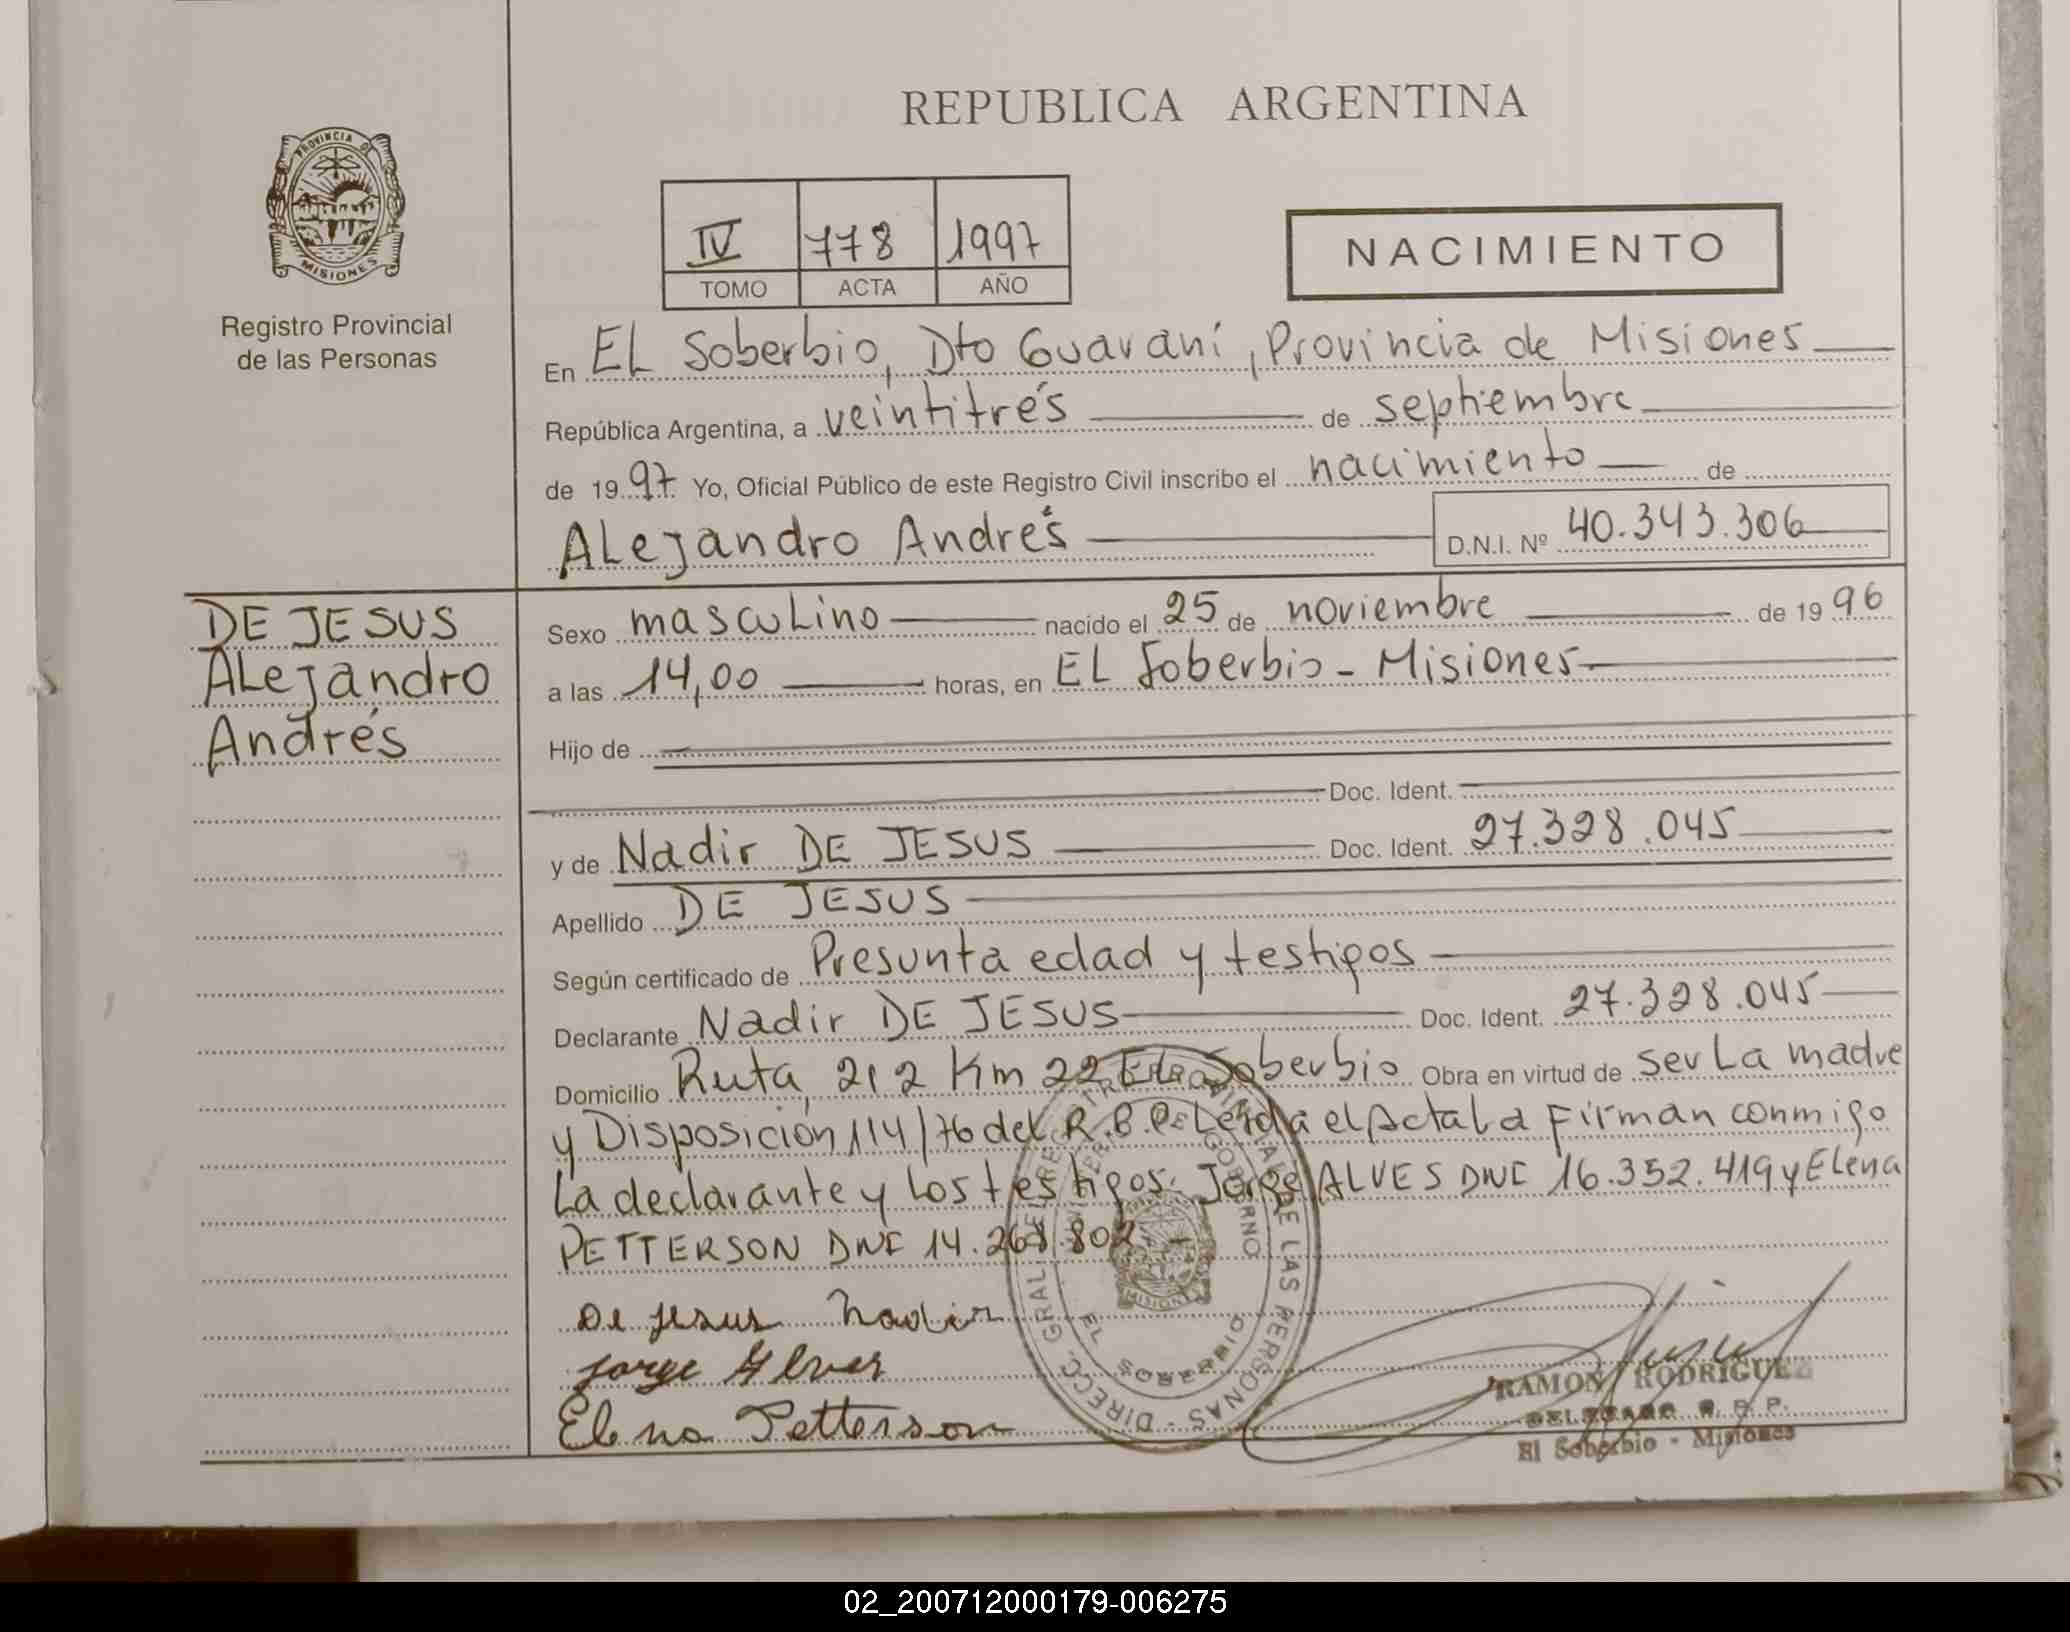 REPUBLICA ARGENTINA
PROVINCIA DE
MISIONES
Registro Provincial
de las Personas
IV 778 1997
TOMO ACTA AÑO
NACIMIENTO
En EL Soberbio, Dto Guaraní, Provincia de Misiones
República Argentina, a veintitrés de septiembre
de 1997 Yo, Oficial Público de este Registro Civil inscribo el nacimiento de
Alejandro Andrés D.N.I. Nº 40.343.306
DE JESUS
Alejandro
Andrés
Sexo masculino nacido el 25 de noviembre de 1996
a las 14,00 horas, en EL Soberbio - Misiones
Hijo de
Doc. Ident.
y de Nadir DE JESUS Doc. Ident. 27.328.045
Apellido DE JESUS
Según certificado de Presunta edad y testigos
Declarante Nadir DE JESUS Doc. Ident. 27.328.045
Domicilio Ruta, 212 Km 22 EL Soberbio Obra en virtud de ser La madre
y Disposición 114/76 del R.B.P. Leida el Acta La Firman conmigo
La declarante y los testigos: Jorge ALVES DNI 16.352.419 y Elena
PETTERSON DNI 14.268.802
De jesus Nadir
Jorge Alves
Elena Petterson
DIRECC. GRAL. DE LAS PERSONAS
GOBIERNO
MISIONES
EL SOBERBIO
RAMON RODRIGUEZ
DELEGADO R. P. P.
El Soberbio - Misiones
02_200712000179-006275